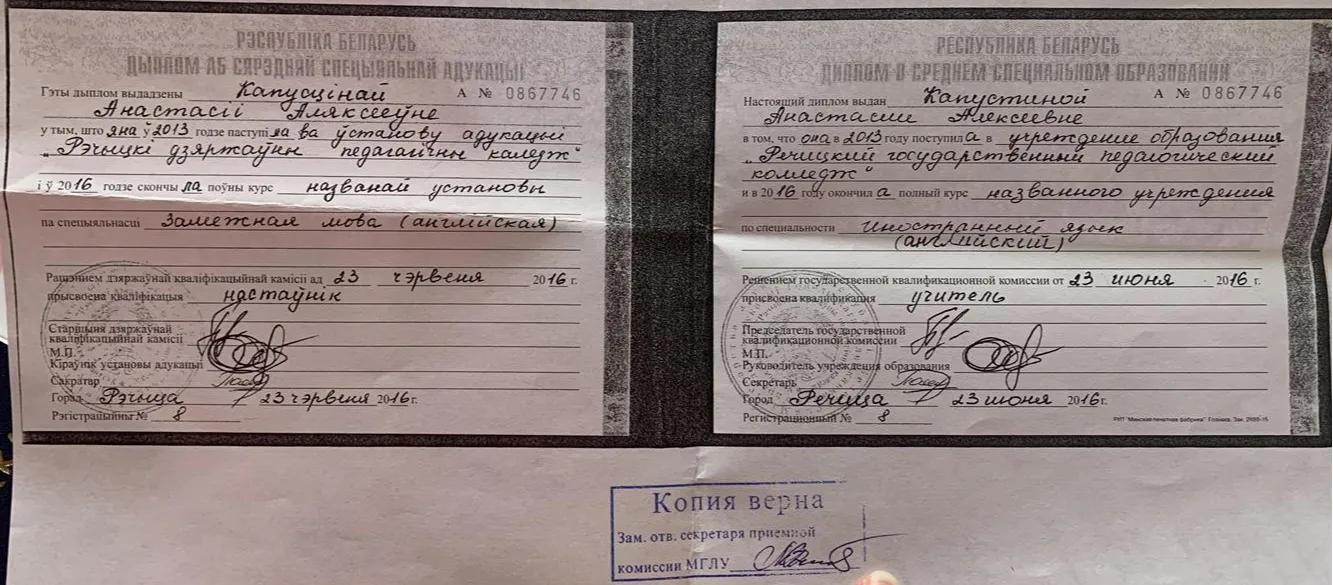 РЭСПУБЛІКА БЕЛАРУСЬ
ДЫПЛОМ АБ СЯРЭДНЯЙ СПЕЦЫЯЛЬНАЙ АДУКАЦЫІ
Гэты дыплом выдадзены Капусцінай А № 0867746
Анастасіі Аляксееўне
у тым, што яна ў 2013 годзе паступіла ва ўстанову адукацыі
"Рэчыцкі дзяржаўны педагагічны каледж"
і ў 2016 годзе скончыла поўны курс названай установы
па спецыяльнасці Замежная мова (англійская)
Рашэннем дзяржаўнай кваліфікацыйнай камісіі ад 23 чэрвеня 2016 г.
прысвоена кваліфікацыя настаўнік
Старшыня дзяржаўнай
кваліфікацыйнай камісіі
М.П.
Кіраўнік установы адукацыі
Сакратар
Горад Рэчыца 23 чэрвеня 2016 г.
Рэгістрацыйны № 8
РЕСПУБЛИКА БЕЛАРУСЬ
ДИПЛОМ О СРЕДНЕМ СПЕЦИАЛЬНОМ ОБРАЗОВАНИИ
Настоящий диплом выдан Капустиной А № 0867746
Анастасии Алексеевне
в том, что она в 2013 году поступила в учреждение образования
"Речицкий государственный педагогический
колледж"
и в 2016 году окончила полный курс названного учреждения
по специальности иностранный язык
(английский)
Решением государственной квалификационной комиссии от 23 июня 2016 г.
присвоена квалификация учитель
Председатель государственной
квалификационной комиссии
М.П.
Руководитель учреждения образования
Секретарь
Город Речица 23 июня 2016 г.
Регистрационный № 8
РУП "Минская печатная фабрика" Гознака.
Копия верна
Зам. отв. секретаря приемной
комиссии МГЛУ